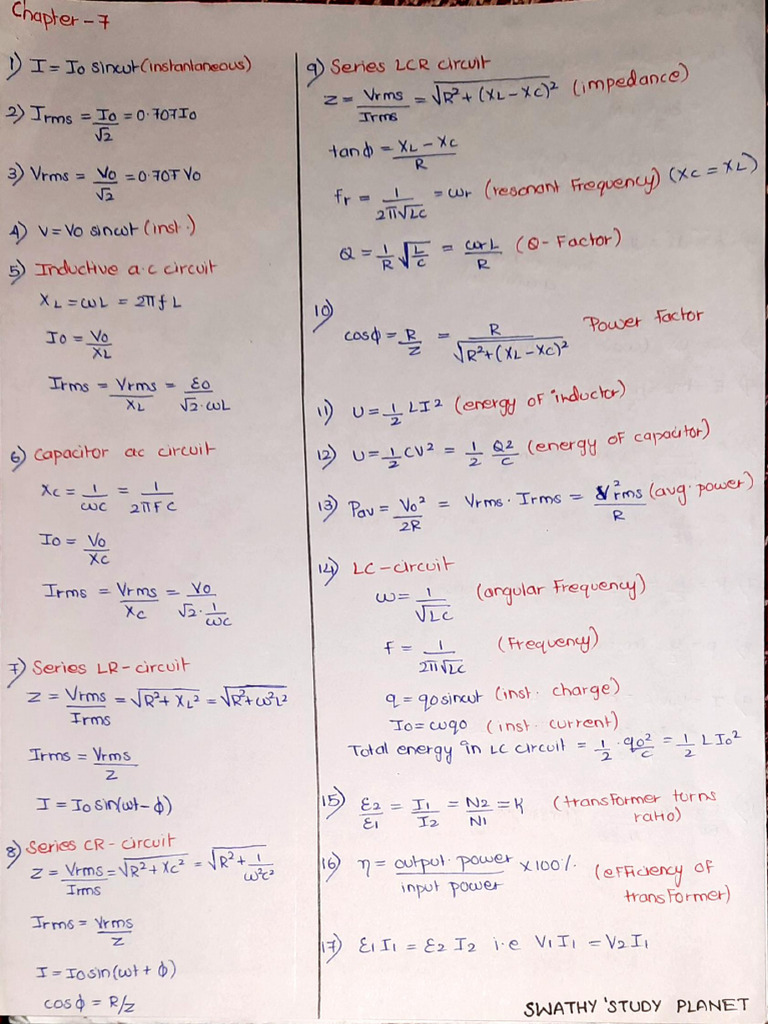 Chapter-7
1) I = I0 sinωt (instantaneous)
2) Irms = I0/√2 = 0.707I0
3) Vrms = V0/√2 = 0.707 V0
4) V = V0 sinωt (inst.)
5) Inductive a.c circuit
XL = ωL = 2πfL
I0 = V0/XL
Irms = Vrms/XL = ε0/√2.ωL
6) Capacitor ac circuit
Xc = 1/ωC = 1/2πFC
I0 = V0/Xc
Irms = Vrms/Xc = V0/√2.1/ωC
7) Series LR-circuit
Z = Vrms/Irms = √R²+XL² = √R²+ω²L²
Irms = Vrms/Z
I = I0 sin(ωt-ϕ)
8) Series CR-circuit
Z = Vrms/Irms = √R²+Xc² = √R²+1/ω²c²
Irms = Vrms/Z
I = I0 sin(ωt+ϕ)
cosϕ = R/Z
9) Series LCR circuit
Z = Vrms/Irms = √R²+(XL-XC)² (impedance)
tanϕ = XL-XC/R
fr = 1/2π√LC = ωr (resonant Frequency) (XC = XL)
Q = 1/R √L/C = ωrL/R (Q-Factor)
10)
cosϕ = R/Z = R/√R²+(XL-XC)² Power factor
11) U = 1/2 LI² (energy of inductor)
12) U = 1/2 CV² = 1/2 Q²/C (energy of capacitor)
13) Pav = V0²/2R = Vrms. Irms = V²rms/R (avg. power)
14) LC-circuit
ω = 1/√LC (angular Frequency)
F = 1/2π√LC (Frequency)
q = q0 sinωt (inst. charge)
I0 = ωq0 (inst. current)
Total energy in LC circuit = 1/2 . q0²/C = 1/2 LI0²
15) ε2/ε1 = I1/I2 = N2/N1 = K (transformer turns
ratio)
16) η = output power/input power x100% (efficiency of
transformer)
17) ε1 I1 = ε2 I2 i.e V1I1 = V2I1
SWATHY'STUDY PLANET